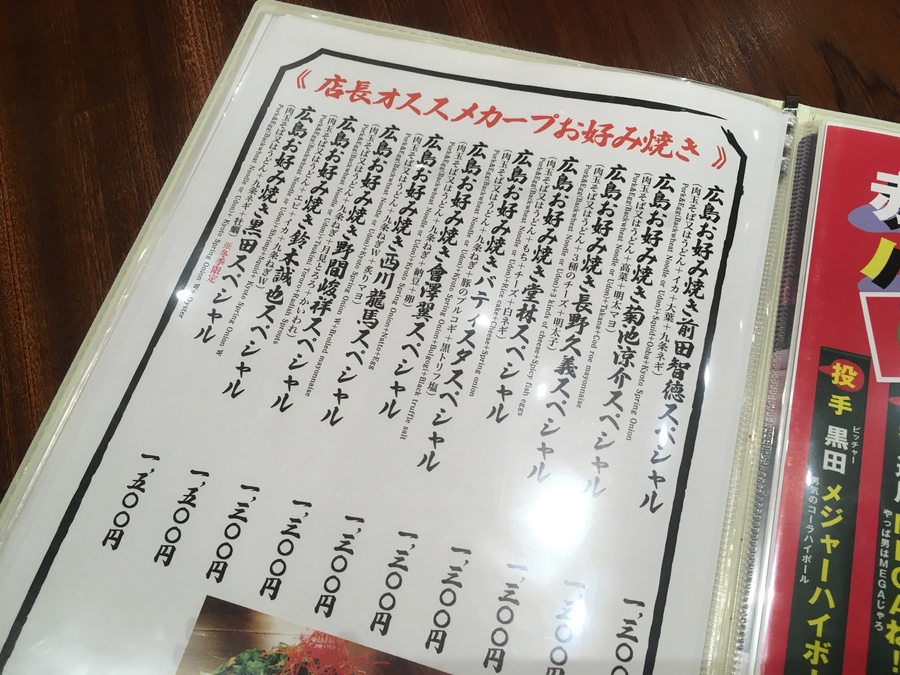 《 店長オススメカープお好み焼き 》
広島お好み焼き前田智徳スペシャル
(肉玉そば又はうどん+イカ+大葉+九条ネギ)
Pork&Egg(Buckwheat Noodle or Udon)+Squid+Ooba+Kyoto Spring Onion
広島お好み焼き菊池涼介スペシャル
(肉玉そば又はうどん+高菜+明太マヨ)
Pork&Egg(Buckwheat Noodle or Udon)+Takana+Cod roe mayonnaise
広島お好み焼き長野久義スペシャル
(肉玉そば又はうどん+3種のチーズ+明太子)
Pork&Egg(Buckwheat Noodle or Udon)+3 kinds of cheese+Spicy fish eggs
広島お好み焼き堂林スペシャル
(肉玉そば又はうどん+もち+チーズ+白ネギ)
Pork&Egg(Buckwheat Noodle or Udon)+Rice cake+Cheese+Spring onion
広島お好み焼きバティスタスペシャル
(肉玉そば又はうどん+九条ねぎ+豚のプルコギ+黒トリフ塩)
Pork&Egg(Buckwheat Noodle or Udon)+Kyoto Spring Onion+Bulgogi+Black truffle salt
広島お好み焼き會澤翼スペシャル
(肉玉そば又はうどん+九条ねぎ+納豆+卵)
Pork&Egg(Buckwheat Noodle or Udon)+Kyoto Spring Onion+Natto+Egg
広島お好み焼き西川龍馬スペシャル
(肉玉そば又はうどん+九条ねぎW+炙りマヨ)
Pork&Egg(Buckwheat Noodle or Udon)+Kyoto Spring Onion W+Broiled mayonnaise
広島お好み焼き野間峻祥スペシャル
(肉玉そば又はうどん+月見とろろ+かいわれ)
広島お好み焼き鈴木誠也スペシャル
(肉玉そば又はうどん+エビ+イカ+九条ねぎW)
広島お好み焼き黒田スペシャル
※冬季限定
(肉玉そば又はうどん+九条ネギ+牡蠣)
一,三〇〇
一,三〇〇円
一,三〇〇円
一,三〇〇円
一,三〇〇円
一,三〇〇円
一,三〇〇円
一,三〇〇円
一,五〇〇円
一,五〇〇円
MEGAね!!
やっぱ男はMEGAじゃろ
投手 黒田 メジャーハイボー
ピッチャー
男気のコーラハイボール